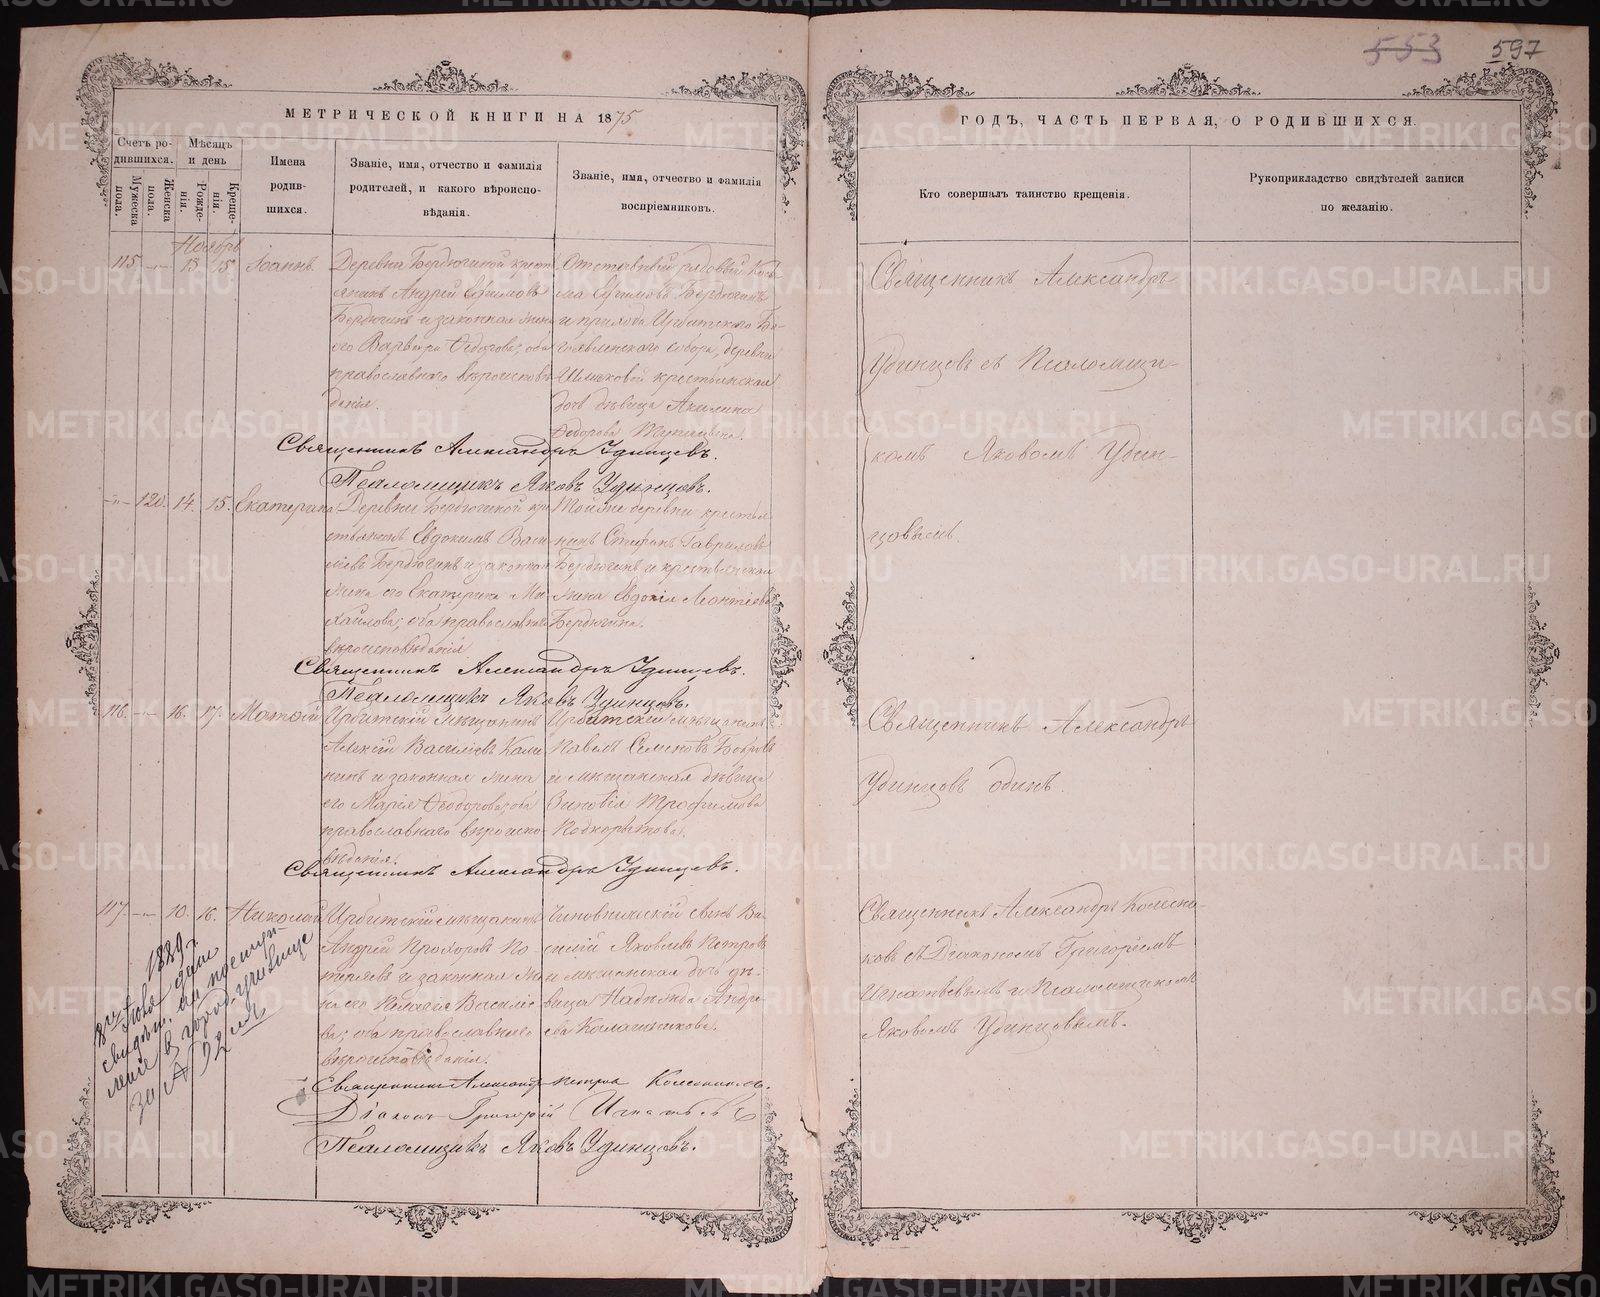 553 597
МЕТРИЧЕСКОЙ КНИГИ НА 1875
ГОДЪ, ЧАСТЬ ПЕРВАЯ, О РОДИВШИХСЯ.
Счетъ родившихся.
Мужеска пола.
Женска пола.
Мѣсяцъ и день
Рожденія.
Крещенія.
Имена родившихся.
Званіе, имя, отчество и фамилія родителей, и какого вѣроисповѣданія.
Званіе, имя, отчество и фамилія воспріемниковъ.
Кто совершалъ таинство крещенія.
Рукоприкладство свидѣтелей записи по желанію.
Ноябрь
115. 13 15 Іоаннъ.
Деревни Бердюгиной крестьянинъ Андрей Ефимовъ
Бердюгинъ и законная жена
его Варвара Ѳедорова; оба
православнаго вѣроисповѣданія.
Отставный рядовый Косьма Ефимовъ Бердюгинъ
и прихода Ирбитскаго Богоявленскаго собора, деревни
крестьянская
дочь дѣвица Акилина
Ѳедорова
Священникъ Александръ Удинцевъ.
Псаломщикъ Яковъ Удинцовъ.
Священникъ Александръ
Удинцовъ съ Псаломщикомъ Яковомъ Удинцовымъ.
120. 14. 15. Екатерина
Деревни Бердюгиной крестьянинъ Евдокимъ Васильевъ Бердюгинъ и законная
жена его Екатерина Михайлова; оба православнаго
вѣроисповѣданія
Той же деревни крестьянинъ Стефанъ Гавриловъ
Бердюгинъ и крестьянская
жена Евдокія Леонтіева
Бердюгина.
Священникъ Александръ Удинцевъ.
Псаломщикъ Яковъ Удинцовъ.
116. 16. 17. Матѳій
Ирбитскій мѣщанинъ
Алексій Василіевъ Калининъ и законная жена
его Марія Ѳеодорова; оба
православнаго вѣроисповѣданія.
Ирбитскій мѣщанинъ
Павелъ Семеновъ Бобровъ
и мѣщанская дѣвица
Зиновія Трофимова
Подкорытова.
Священникъ Александръ Удинцевъ.
Священникъ Александръ
Удинцовъ одинъ.
117. 10. 16. Николай
Ирбитскій мѣщанинъ
Андрей Прохоровъ Потеряевъ и законная жена его Пелагія Василіева; оба православнаго
вѣроисповѣданія.
Чиновничій сынъ Василій Яковлевъ Петровъ
и мѣщанская дочь дѣвица Надежда Андреева Калашникова.
Священникъ Александръ Петровъ Колесниковъ.
Діаконъ Григорій Игнатьевъ
Псаломщикъ Яковъ Удинцовъ.
Священникъ Александръ Колесниковъ съ Діакономъ Григоріемъ
Игнатьевымъ и Псаломщикомъ
Яковомъ Удинцовымъ.
1889 г.
8го Іюля дано
свидѣт. на поступленіе въ город. училище
за № 92
METRIKI.GASO-URAL.RU